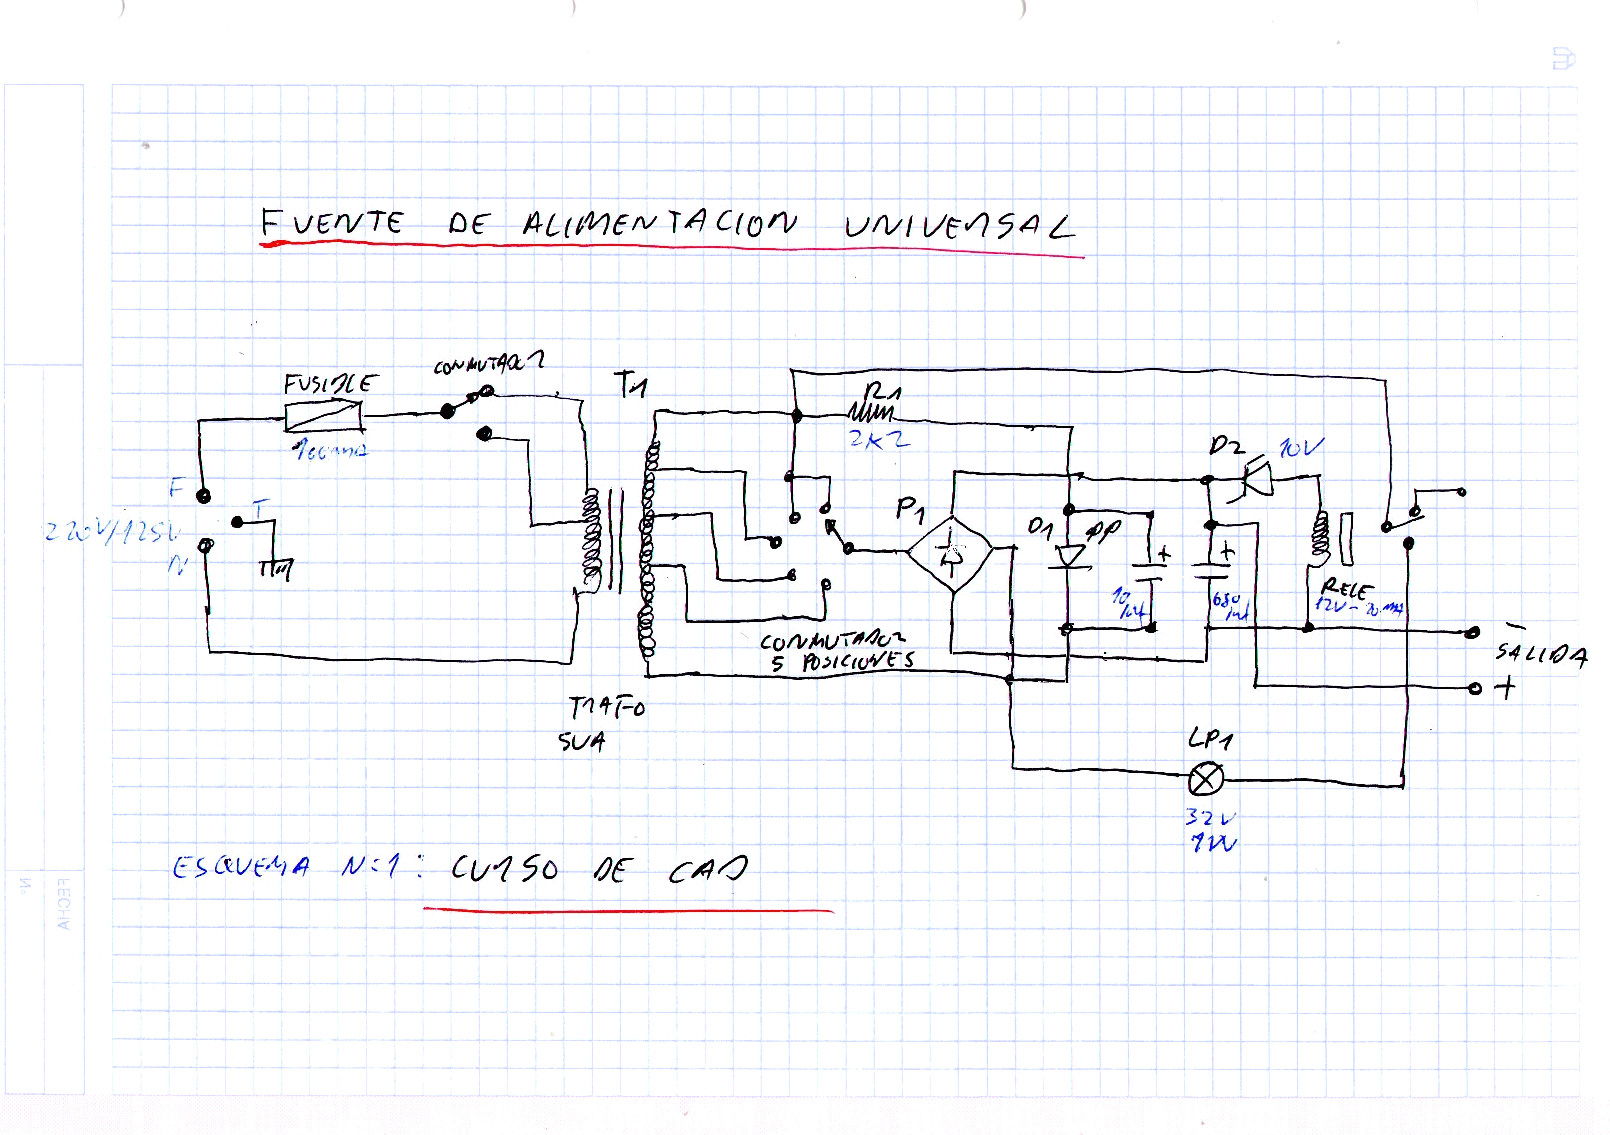 FUENTE DE ALIMENTACION UNIVERSAL
CONMUTADOR
FUSIBLE
100mA
T1
R1
2K2
D2
10V
F
T
220V/125V
N
P1
D1
+
+
10
680
RELE
12V-20mA
-
SALIDA
+
CONMUTADOR
5 POSICIONES
TRAFO
5VA
LP1
32V
1W
ESQUEMA N:1: CURSO DE CAD
FECHA
Nº